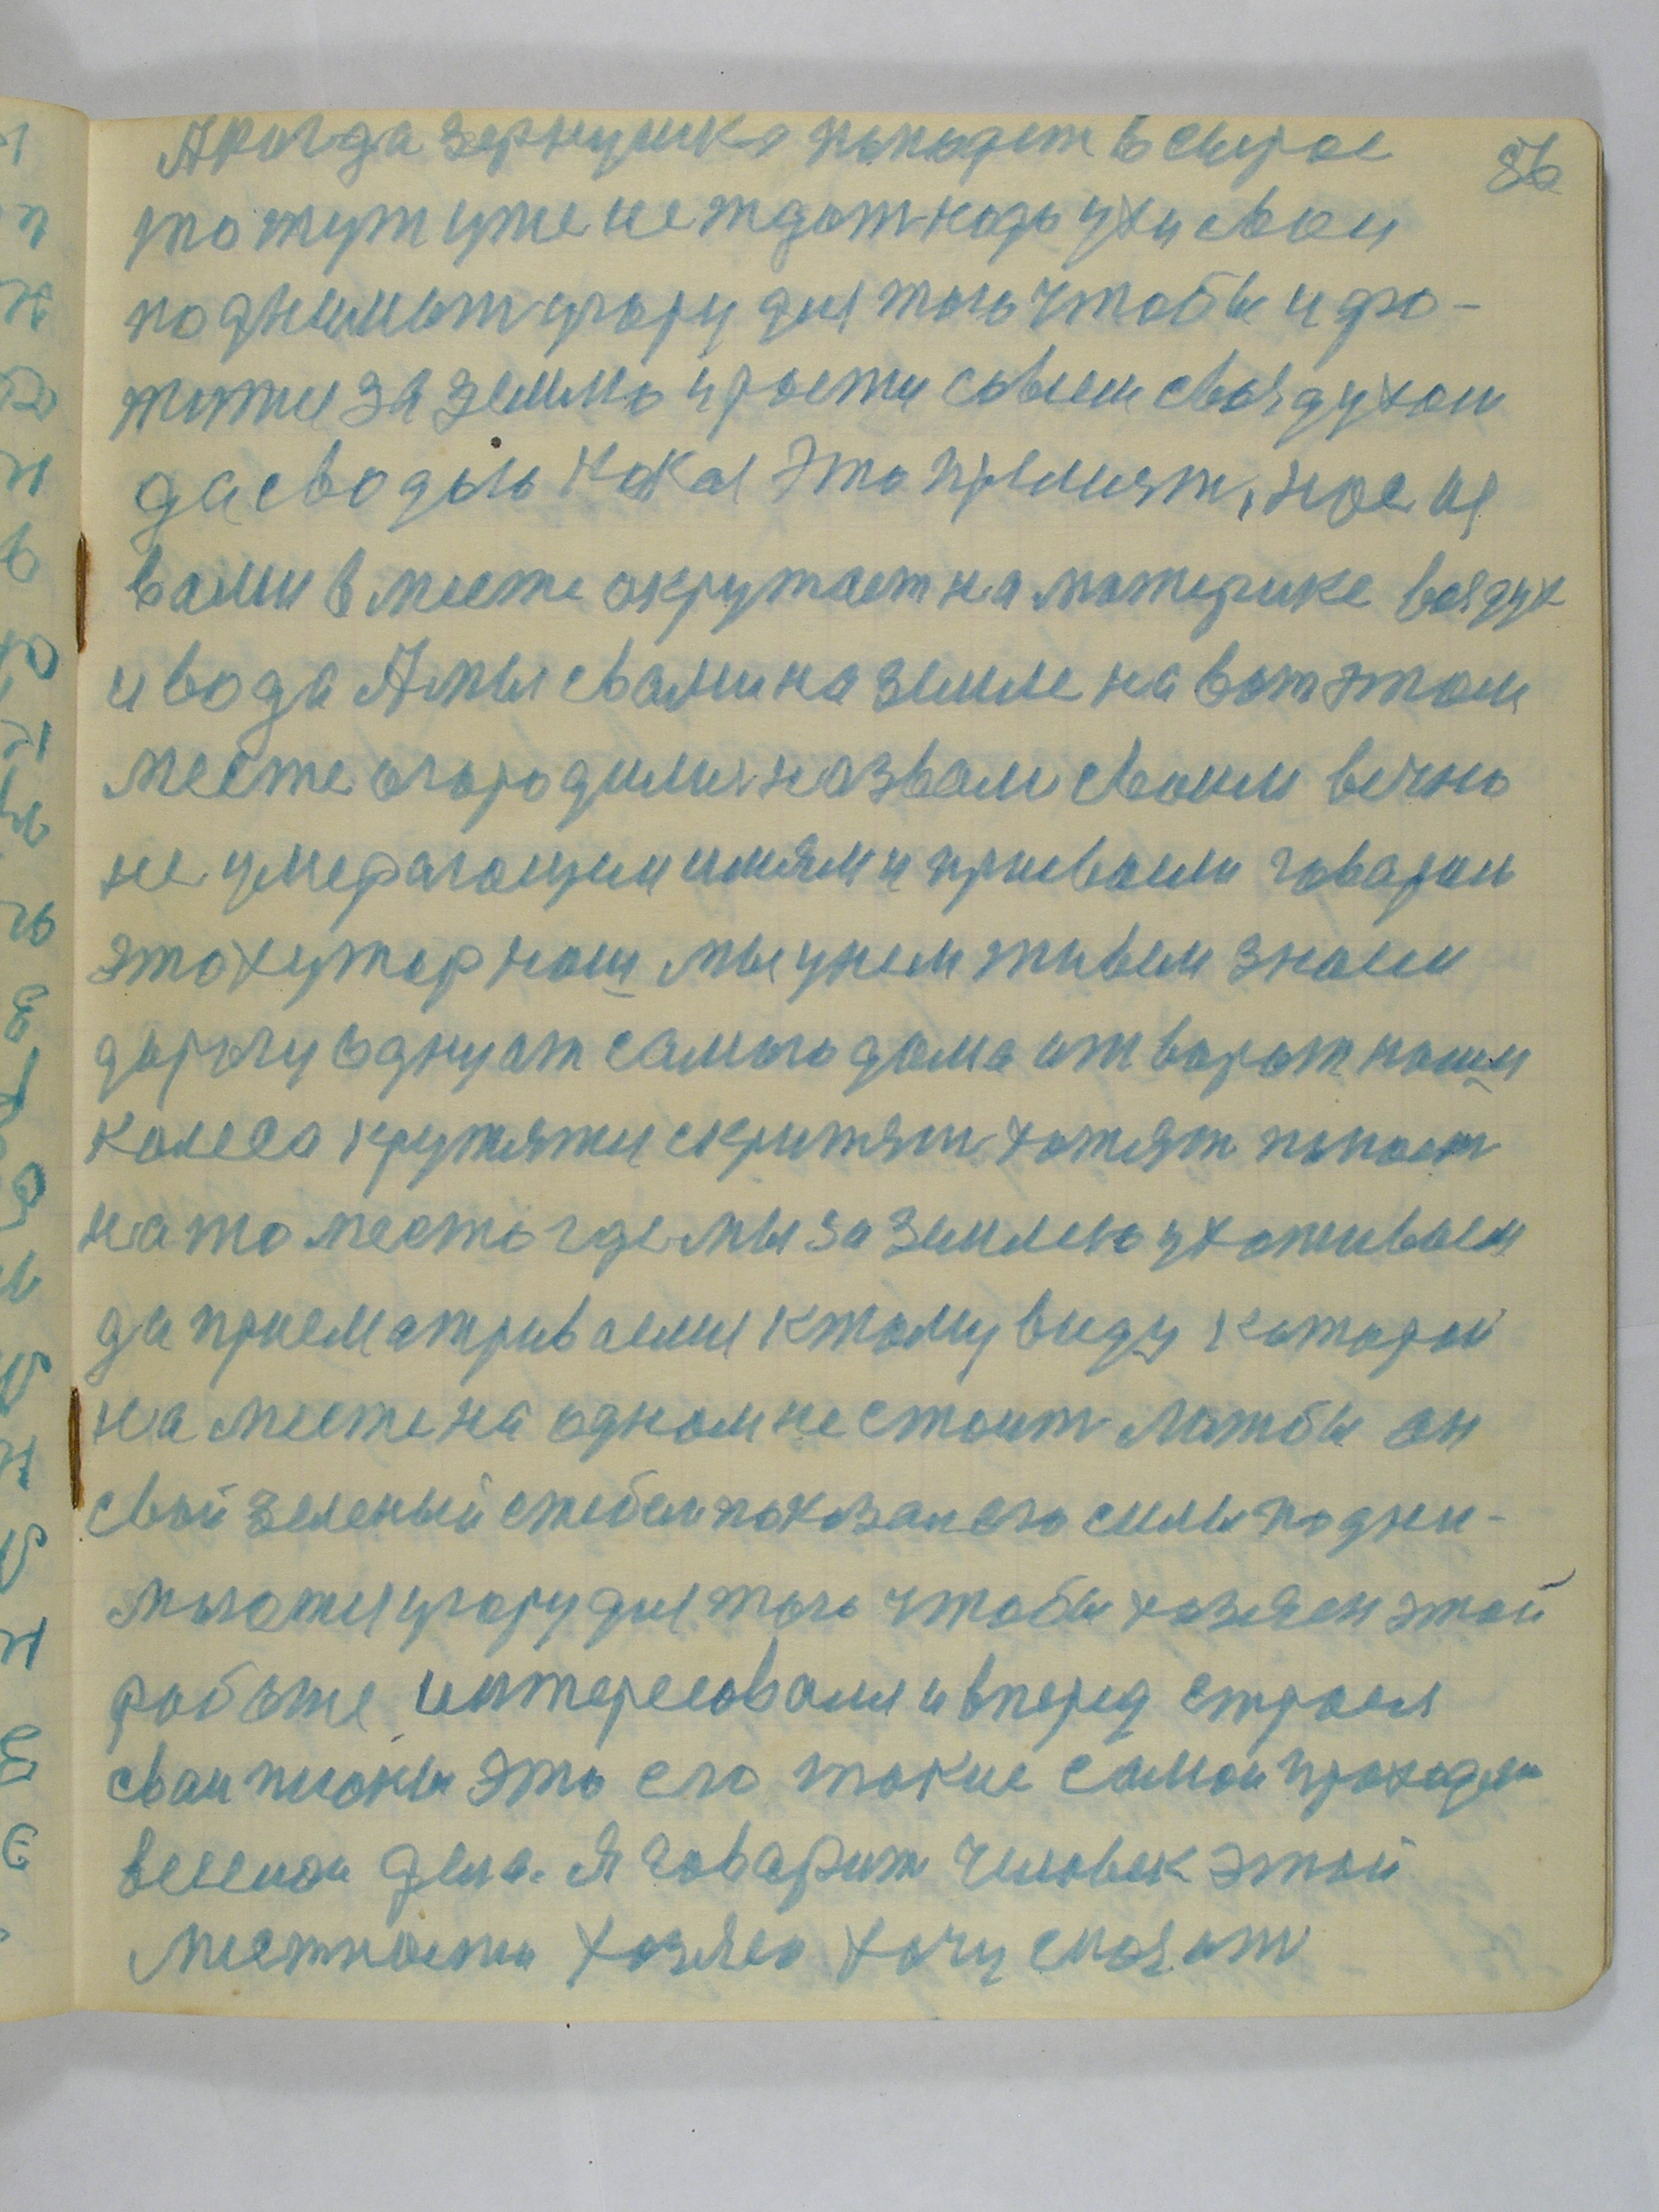 А когда зернушка попадет в сырое
то тут уже не ждет надо ухи свои
поднимат угору для того чтобы и
за землю и рости совсем своядухом
да сводою какая это прелисят, нас и
вами вместе окружает на материке воядух
и вода А мы свами на земле на вот этом
месте огородили назвали своим вечно
не умерающим имям и присвоили говарим
это хутар наш мы унем живем знаем
дарогу одну от самого дома от варот наши
колеса кружятся скрипят хотят попаст
на то место где мы за землею ухаживаем
да присматриваемся ктому виду которай
на месте на одном не стоит литбы он
свой зеленый стебел показал его силы подни-
мются угору для того чтобы хозяен этой
работе интересовался и вперед строел
сваи планы это его такие самои
дела. Я говарит человек этой
местности хозяен хочу сказат
86